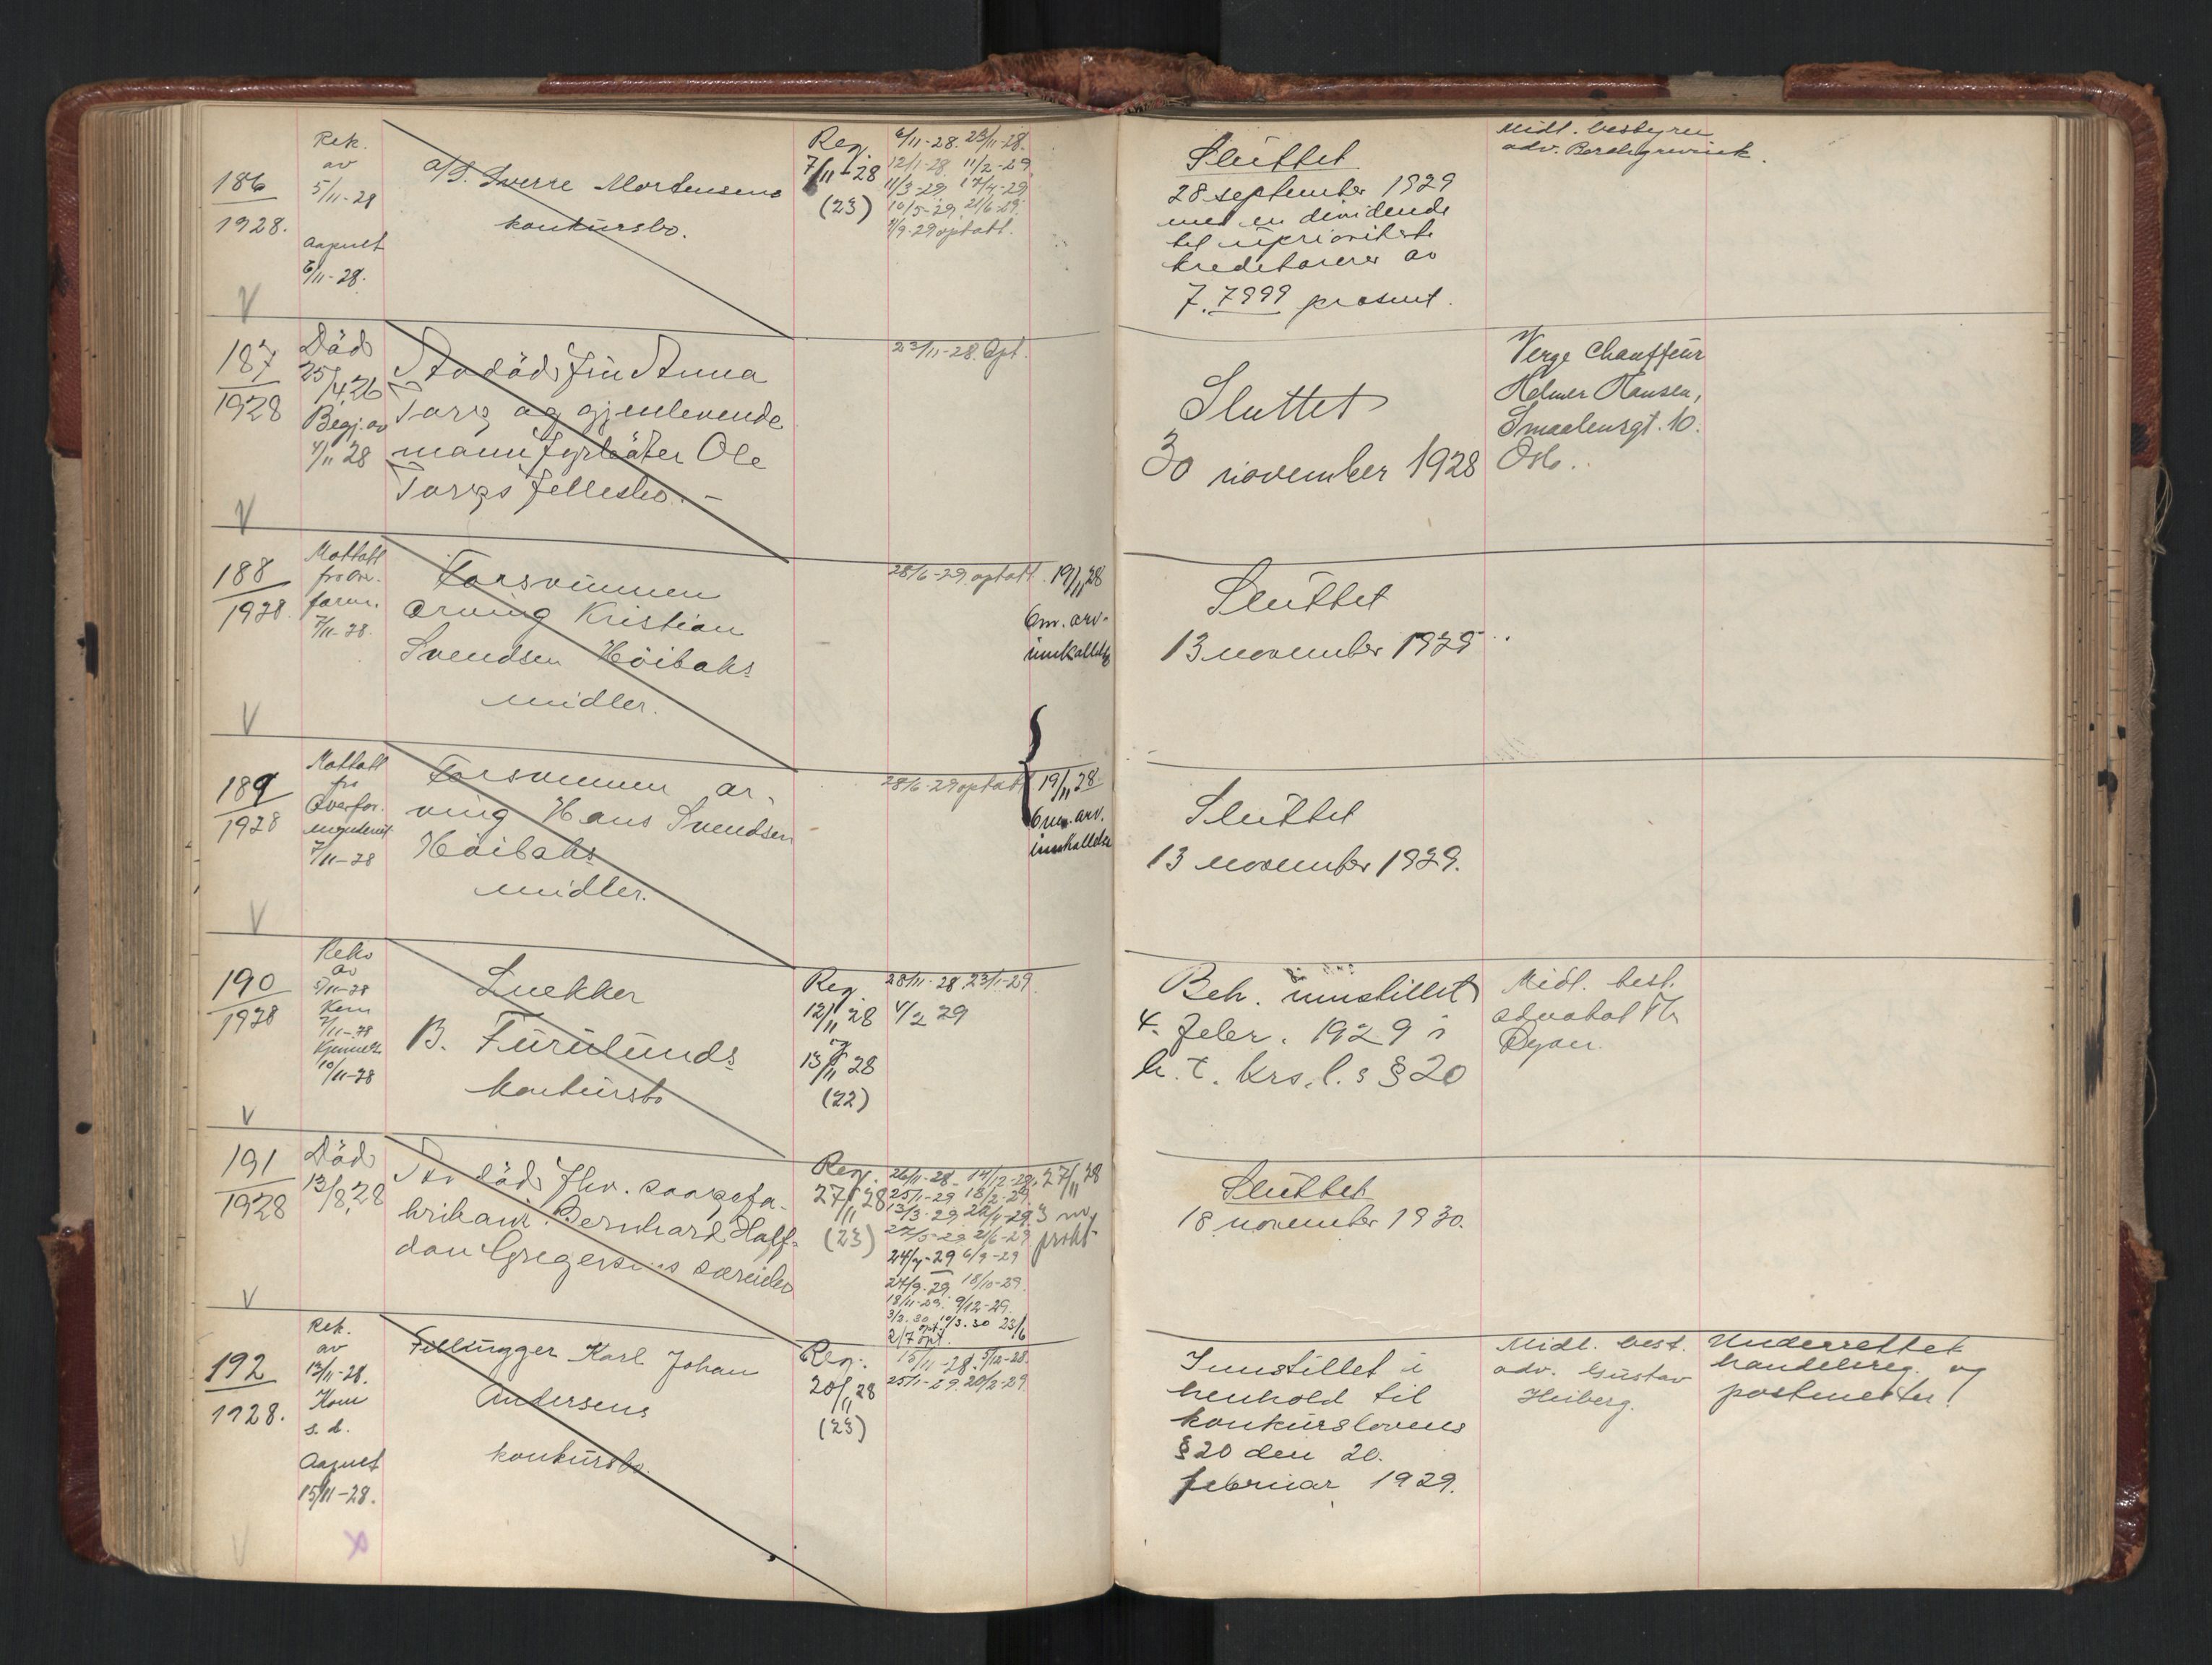 186
1928.
Rek.
av
5/11-28
aapnet
6/11-28.
a/S. Sverre Mortensens
konkursbo.
Reg.
7/11-28
(23)
6/11-28. 23/11-28.
11/2-29.
11/3-29. 17/4-29
10/5-29. 21/6-29.
optatt.
Sluttet
28 september 1929
med en dividende
til uprioriterte
kreditorer av
7.7999 prosent.
Midl. bestyrer
adv. Borchgrevink.
V
187
1928
Död
25/4 26
Begj. av
28
Avdöd fru Anna
Torps og gjenlevende
mann fyrböter Ole
Torps fellesbo. -
23/11-28. Opt.
Sluttet
30 november 1928
Verge Chauffeur
Helmer Hansen,
Smaalensgt. 10.
Oslo.
V
188
1928
Mottatt
fra ov.
form.
7/11-28.
Forsvunnen
arving Kristian
Svendsen Höibaks
midler.
28/6-29. optatt.
19/11 28
6m. arv-
innkallelse
Sluttet
13 november 1929
V
189
1928
Mottatt
fra
Overfor-
mynderiet
7/11-28
Forsvunnen ar-
ving Hans Svendsen
Höibaks
midler.
28/6-29 optatt
19/11 28.
6m. arv.
innkallelse
Sluttet
13 november 1929.
V
190
1928
Rek.
av
5/11-28
Kom
7/11-28
Kjennelse
10/11-28
Snekker
B. Furulunds
konkursbo
Reg.
12/11 28
og
13/11 28
(22)
28/11-28. 23/1-29.
4/2 29
Beh. innstillet
4. febr. 1929 i
h. t. krs. l.s § 20
Midl. best.
advokat Th.
V
191
1928
Död
13/8 28
Avdöd fhv. saapefa-
brikant Bernhard Half-
dan Gregersens særeiebo
Reg.
27/11 28
(23)
26/11-28. 14/12-28.
25/1-29 18/2-29.
13/3-29 22/4-29.
27/5-29 21/6-29
6/9-29
27/9-29 18/10-29.
18/11-29. 9/12-29.
10/3.30 23/6
2/7 opt.
27/11 28
3 m.
prokl.
Sluttet
18 november 1930.
V
192
1928.
Rek.
av
13/11-28.
Kom
s. d.
Aapnet
15/11-28.
Filhugger Karl Johan
Andersens
konkursbo.
Reg.
20/11 28
(23)
15/11-28. 5/12-28.
25/1-29. 20/2-29.
Innstillet i
henhold til
konkurslovens
§ 20 den 20.
februar 1929.
Midl. best.
adv. Gustav
Heiberg.
Underrettet
handelsreg. og
postmester!
V
x